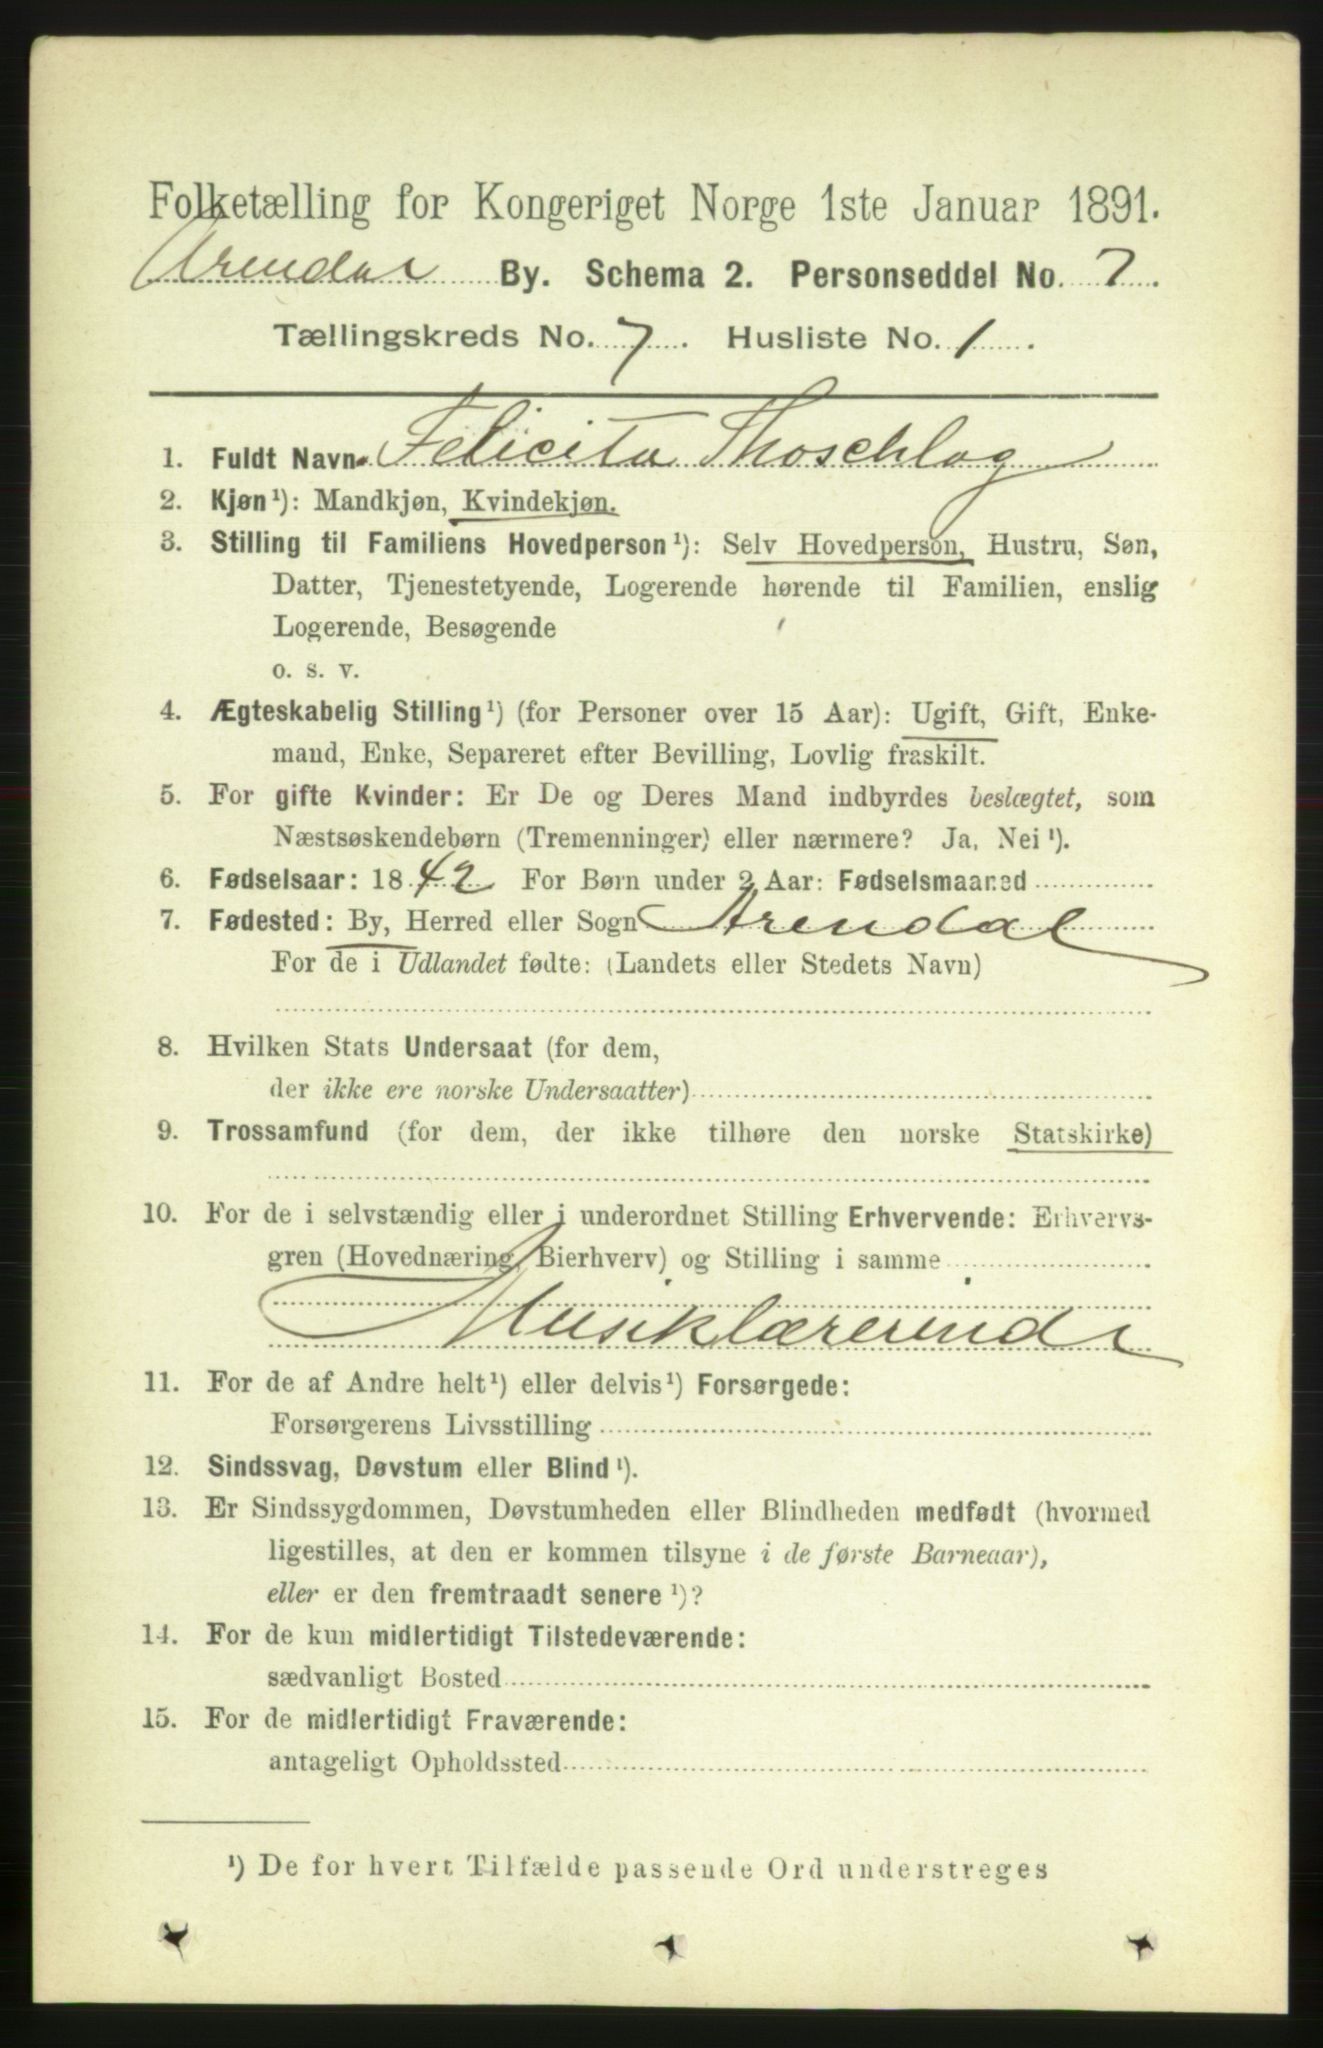 Folketælling for Kongeriget Norge 1ste Januar 1891.
Arendal By. Schema 2. Personseddel No. 7.
Tællingskreds No. 7. Husliste No. 1.
1. Fuldt Navn Felicita Thoschlag
2. Kjøn¹): Mandkjøn, Kvindekjøn.
3. Stilling til Familiens Hovedperson¹): Selv Hovedperson, Hustru, Søn,
Datter, Tjenestetyende, Logerende hørende til Familien, enslig
Logerende, Besøgende
o. s. v.
4. Ægteskabelig Stilling¹) (for Personer over 15 Aar): Ugift, Gift, Enke-
mand, Enke, Separeret efter Bevilling, Lovlig fraskilt.
5. For gifte Kvinder: Er De og Deres Mand indbyrdes beslægtet, som
Næstsøskendebørn (Tremenninger) eller nærmere? Ja, Nei¹).
6. Fødselsaar: 1842 For Børn under 2 Aar: Fødselsmaaned
7. Fødested: By, Herred eller Sogn Arendal
For de i Udlandet fødte: (Landets eller Stedets Navn)
8. Hvilken Stats Undersaat (for dem,
der ikke ere norske Undersaatter)
9. Trossamfund (for dem, der ikke tilhøre den norske Statskirke)
10. For de i selvstændig eller i underordnet Stilling Erhvervende: Erhvervs-
gren (Hovednæring, Bierhverv) og Stilling i samme
Musiklærerinde
11. For de af Andre helt¹) eller delvis¹) Forsørgede:
Forsørgerens Livsstilling
12. Sindssvag, Døvstum eller Blind¹).
13. Er Sindssygdommen, Døvstumheden eller Blindheden medfødt (hvormed
ligestilles, at den er kommen tilsyne i de første Barneaar),
eller er den fremtraadt senere¹)?
14. For de kun midlertidigt Tilstedeværende:
sædvanligt Bosted
15. For de midlertidigt Fraværende:
antageligt Opholdssted
¹) De for hvert Tilfælde passende Ord understreges